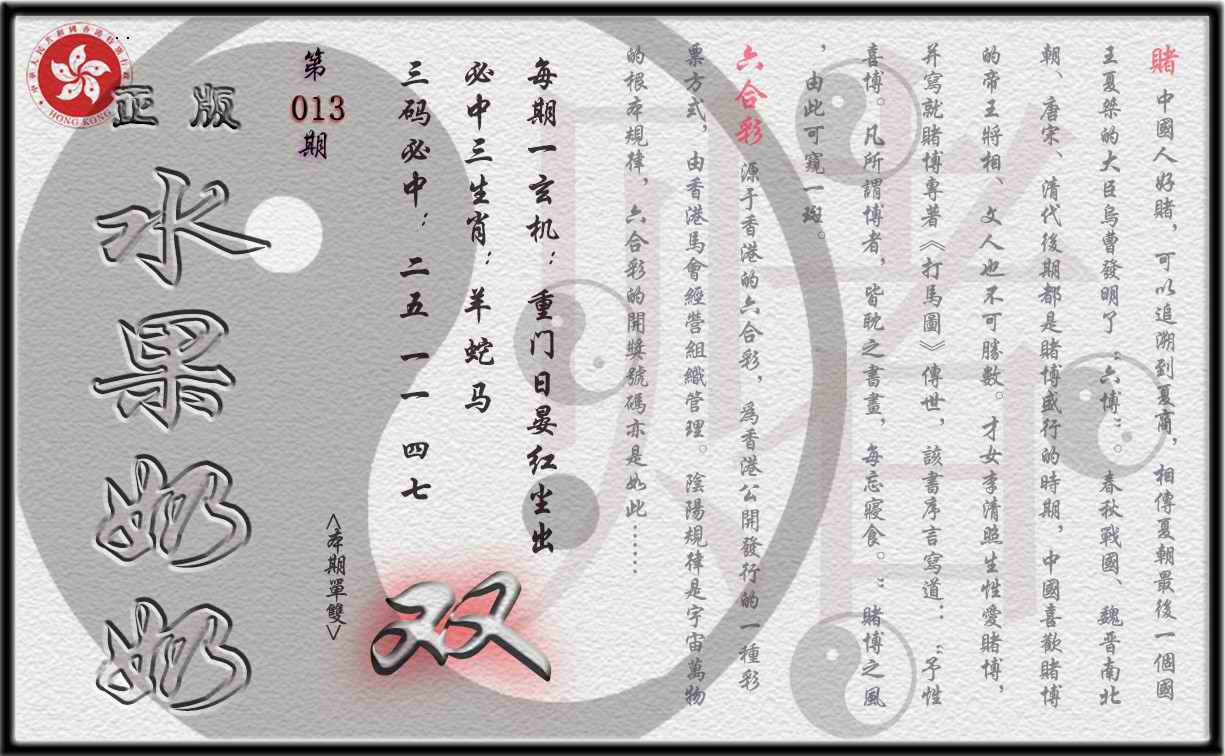 賭 中國人好賭，可以追溯到夏商，相傳夏朝最後一個國
王夏桀的大臣烏曹發明了“六博”。春秋戰國、魏晋南北
朝、唐宋、清代後期都是賭博盛行的時期，中國喜歡賭博
的帝王將相、文人也不可勝數。才女李清照生性愛賭博，
并寫就賭博專著《打馬圖》傳世，該書序言寫道：：“予性
喜博。凡所謂博者，皆耽之書畫，每忘寢食。：賭博之風
，由此可窺一斑。
六合彩 源于香港的六合彩，爲香港公開發行的一種彩
票方式，由香港馬會經營組織管理。陰陽規律是宇宙萬物
的根本規律，六合彩的開獎號碼亦是如此……
每期一玄机：重门日晏红尘出
必中三生肖：羊蛇马
三码必中：二五 一一 四七
双
<本期單雙>
第
013
期
正版
水果奶奶
中華人民共和國香港特別行政區
HONG KONG